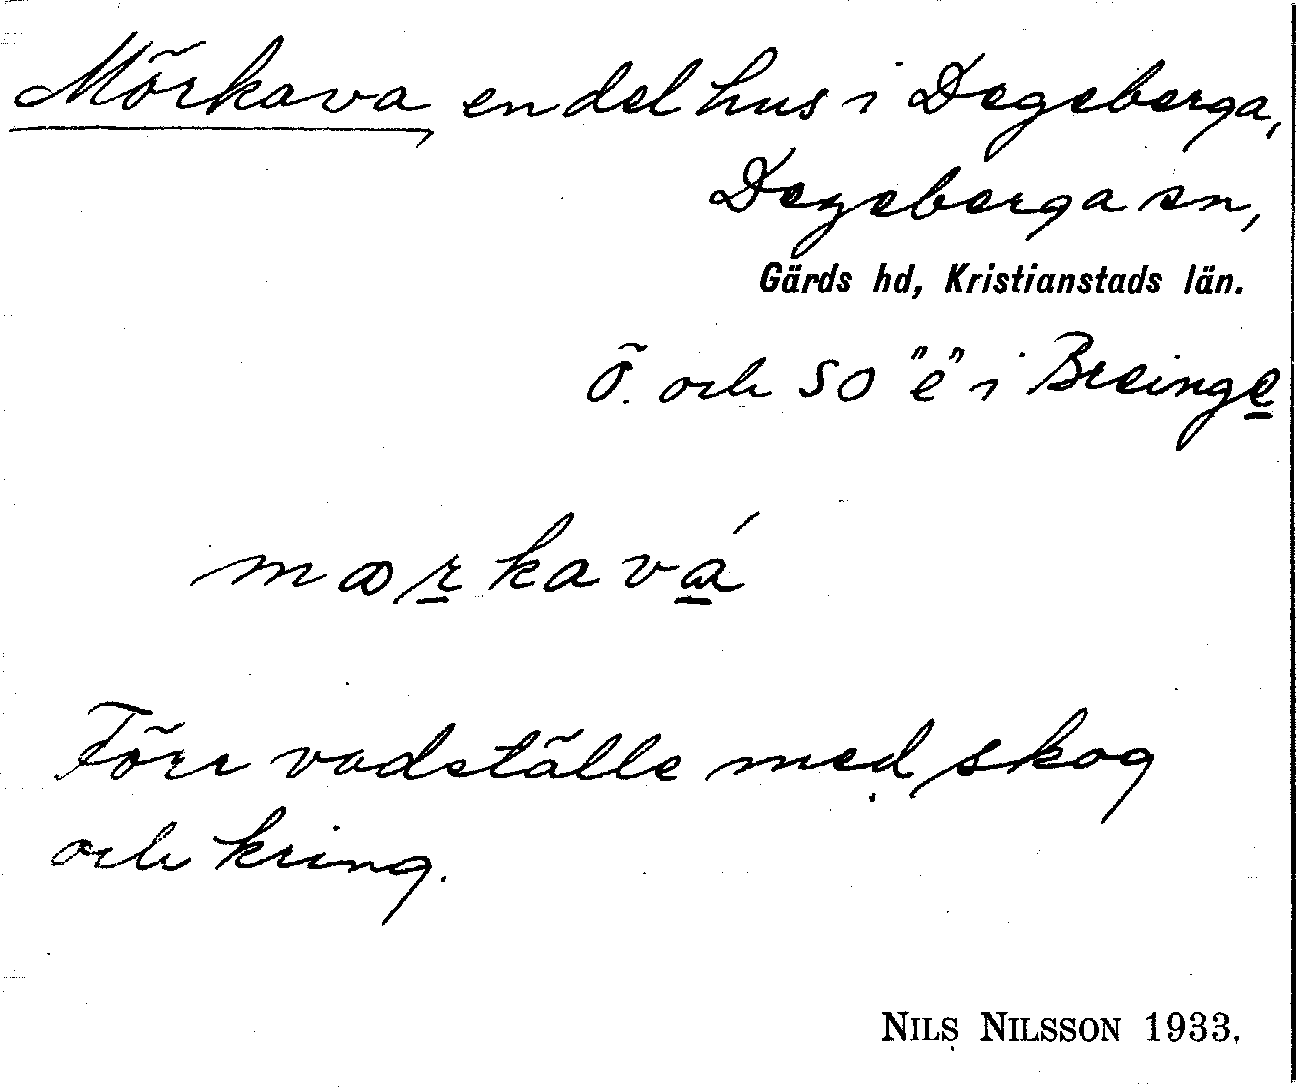 Mörkava en del hus i Degeberga,
Degeberga sn,
Gärds hd, Kristianstads län.
Ö. och SO "e" i Breinge
mœrkavá
Förr vadställe med skog
och kring.
NILS NILSSON 1933.